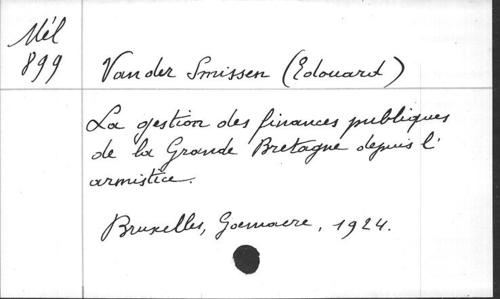 Mél
899
Van der Smissen (Edouard)
La gestion des finances publiques
de la Grande Bretagne depuis l'
armistice.
Bruxelles, Goemaere, 1924.